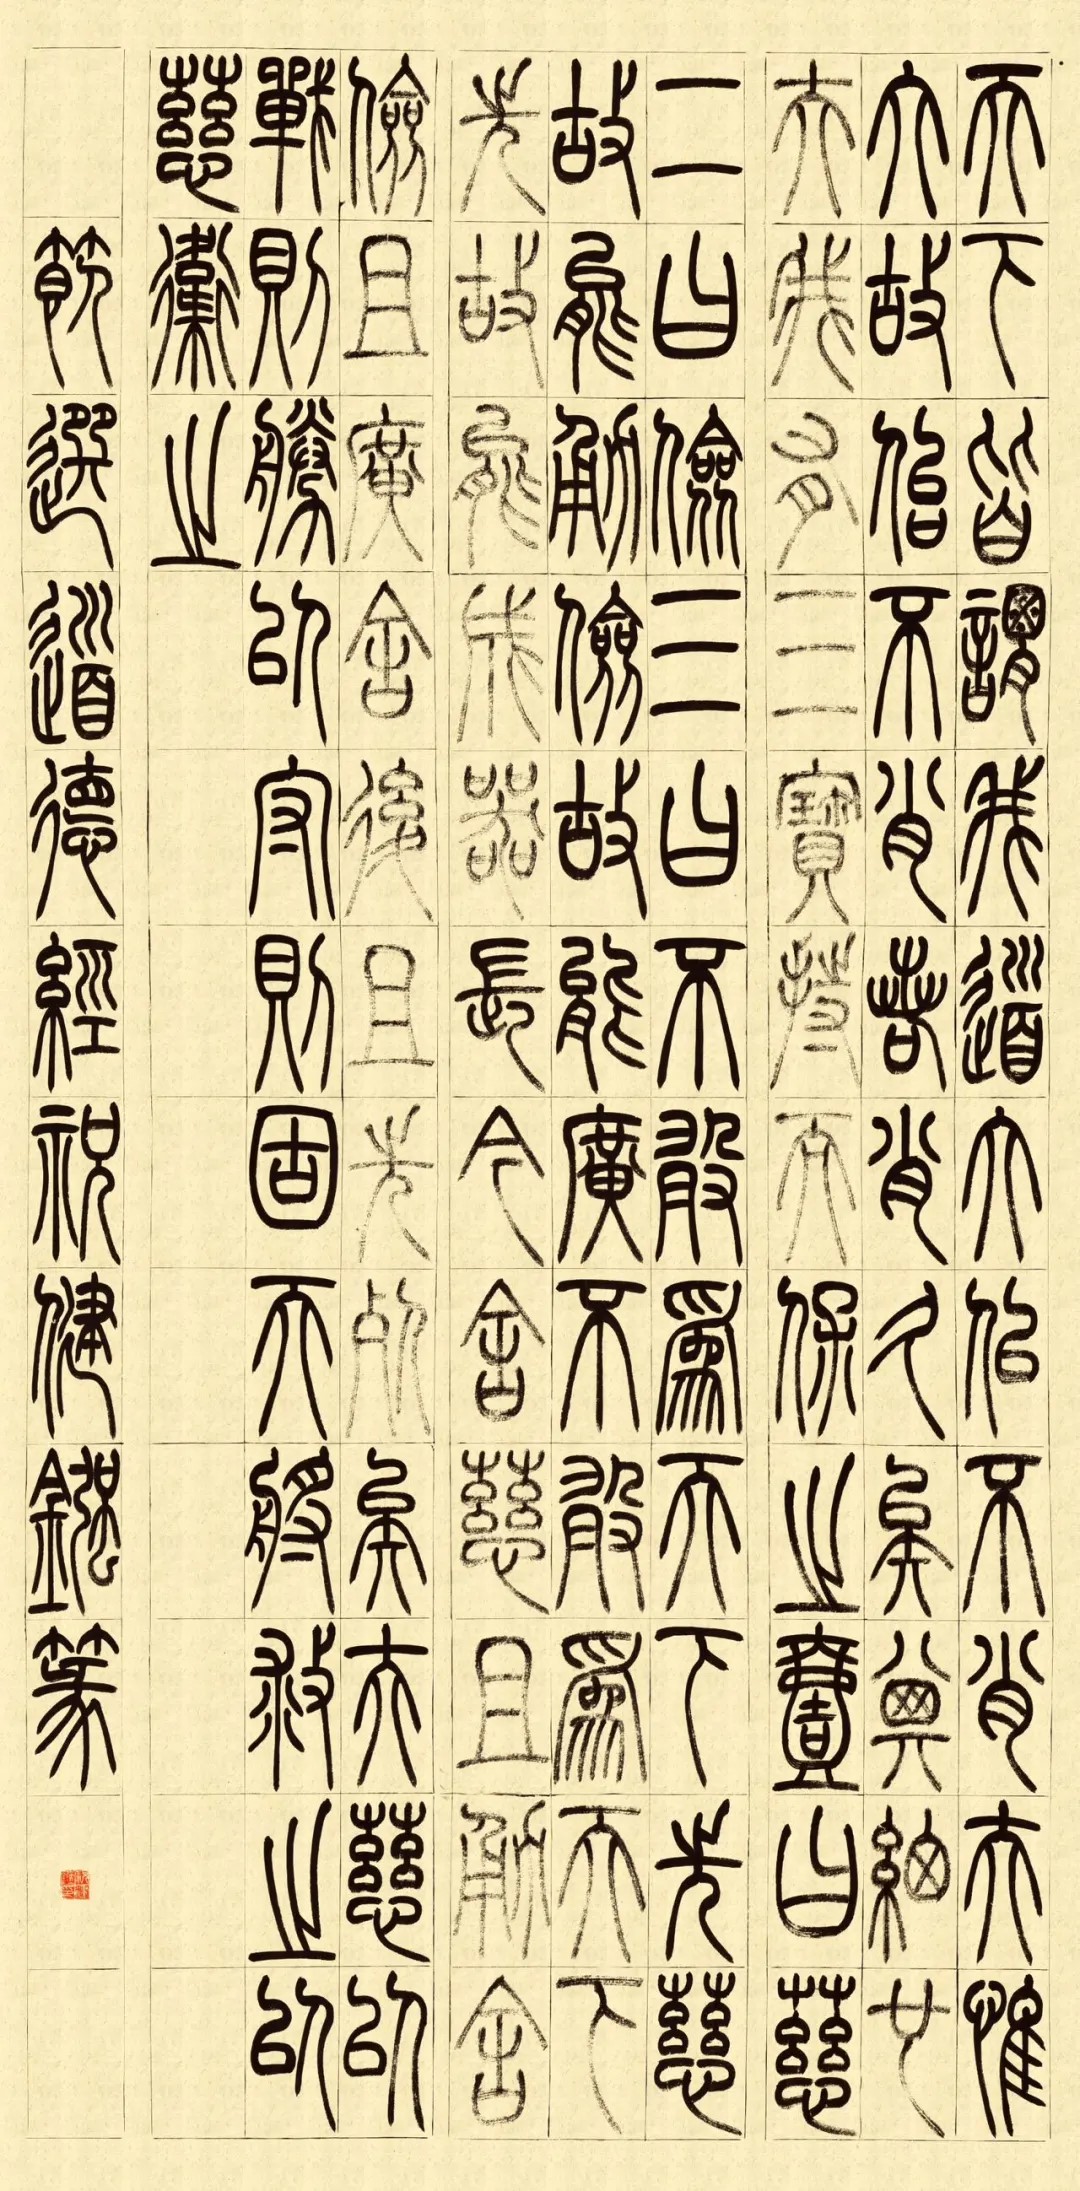 天下皆謂我道大似不肖夫惟
大故似不肖若肖久矣其細也
夫我有三寶持而保之壹曰慈
二曰儉三曰不敢為天下先慈
故能勇儉故能廣不敢為天下
先故能成器長今舍慈且勇舍
儉且廣舍後且先死矣夫慈以
戰則勝以守則固天將救之以
慈衛之
節選道德經祝健篆